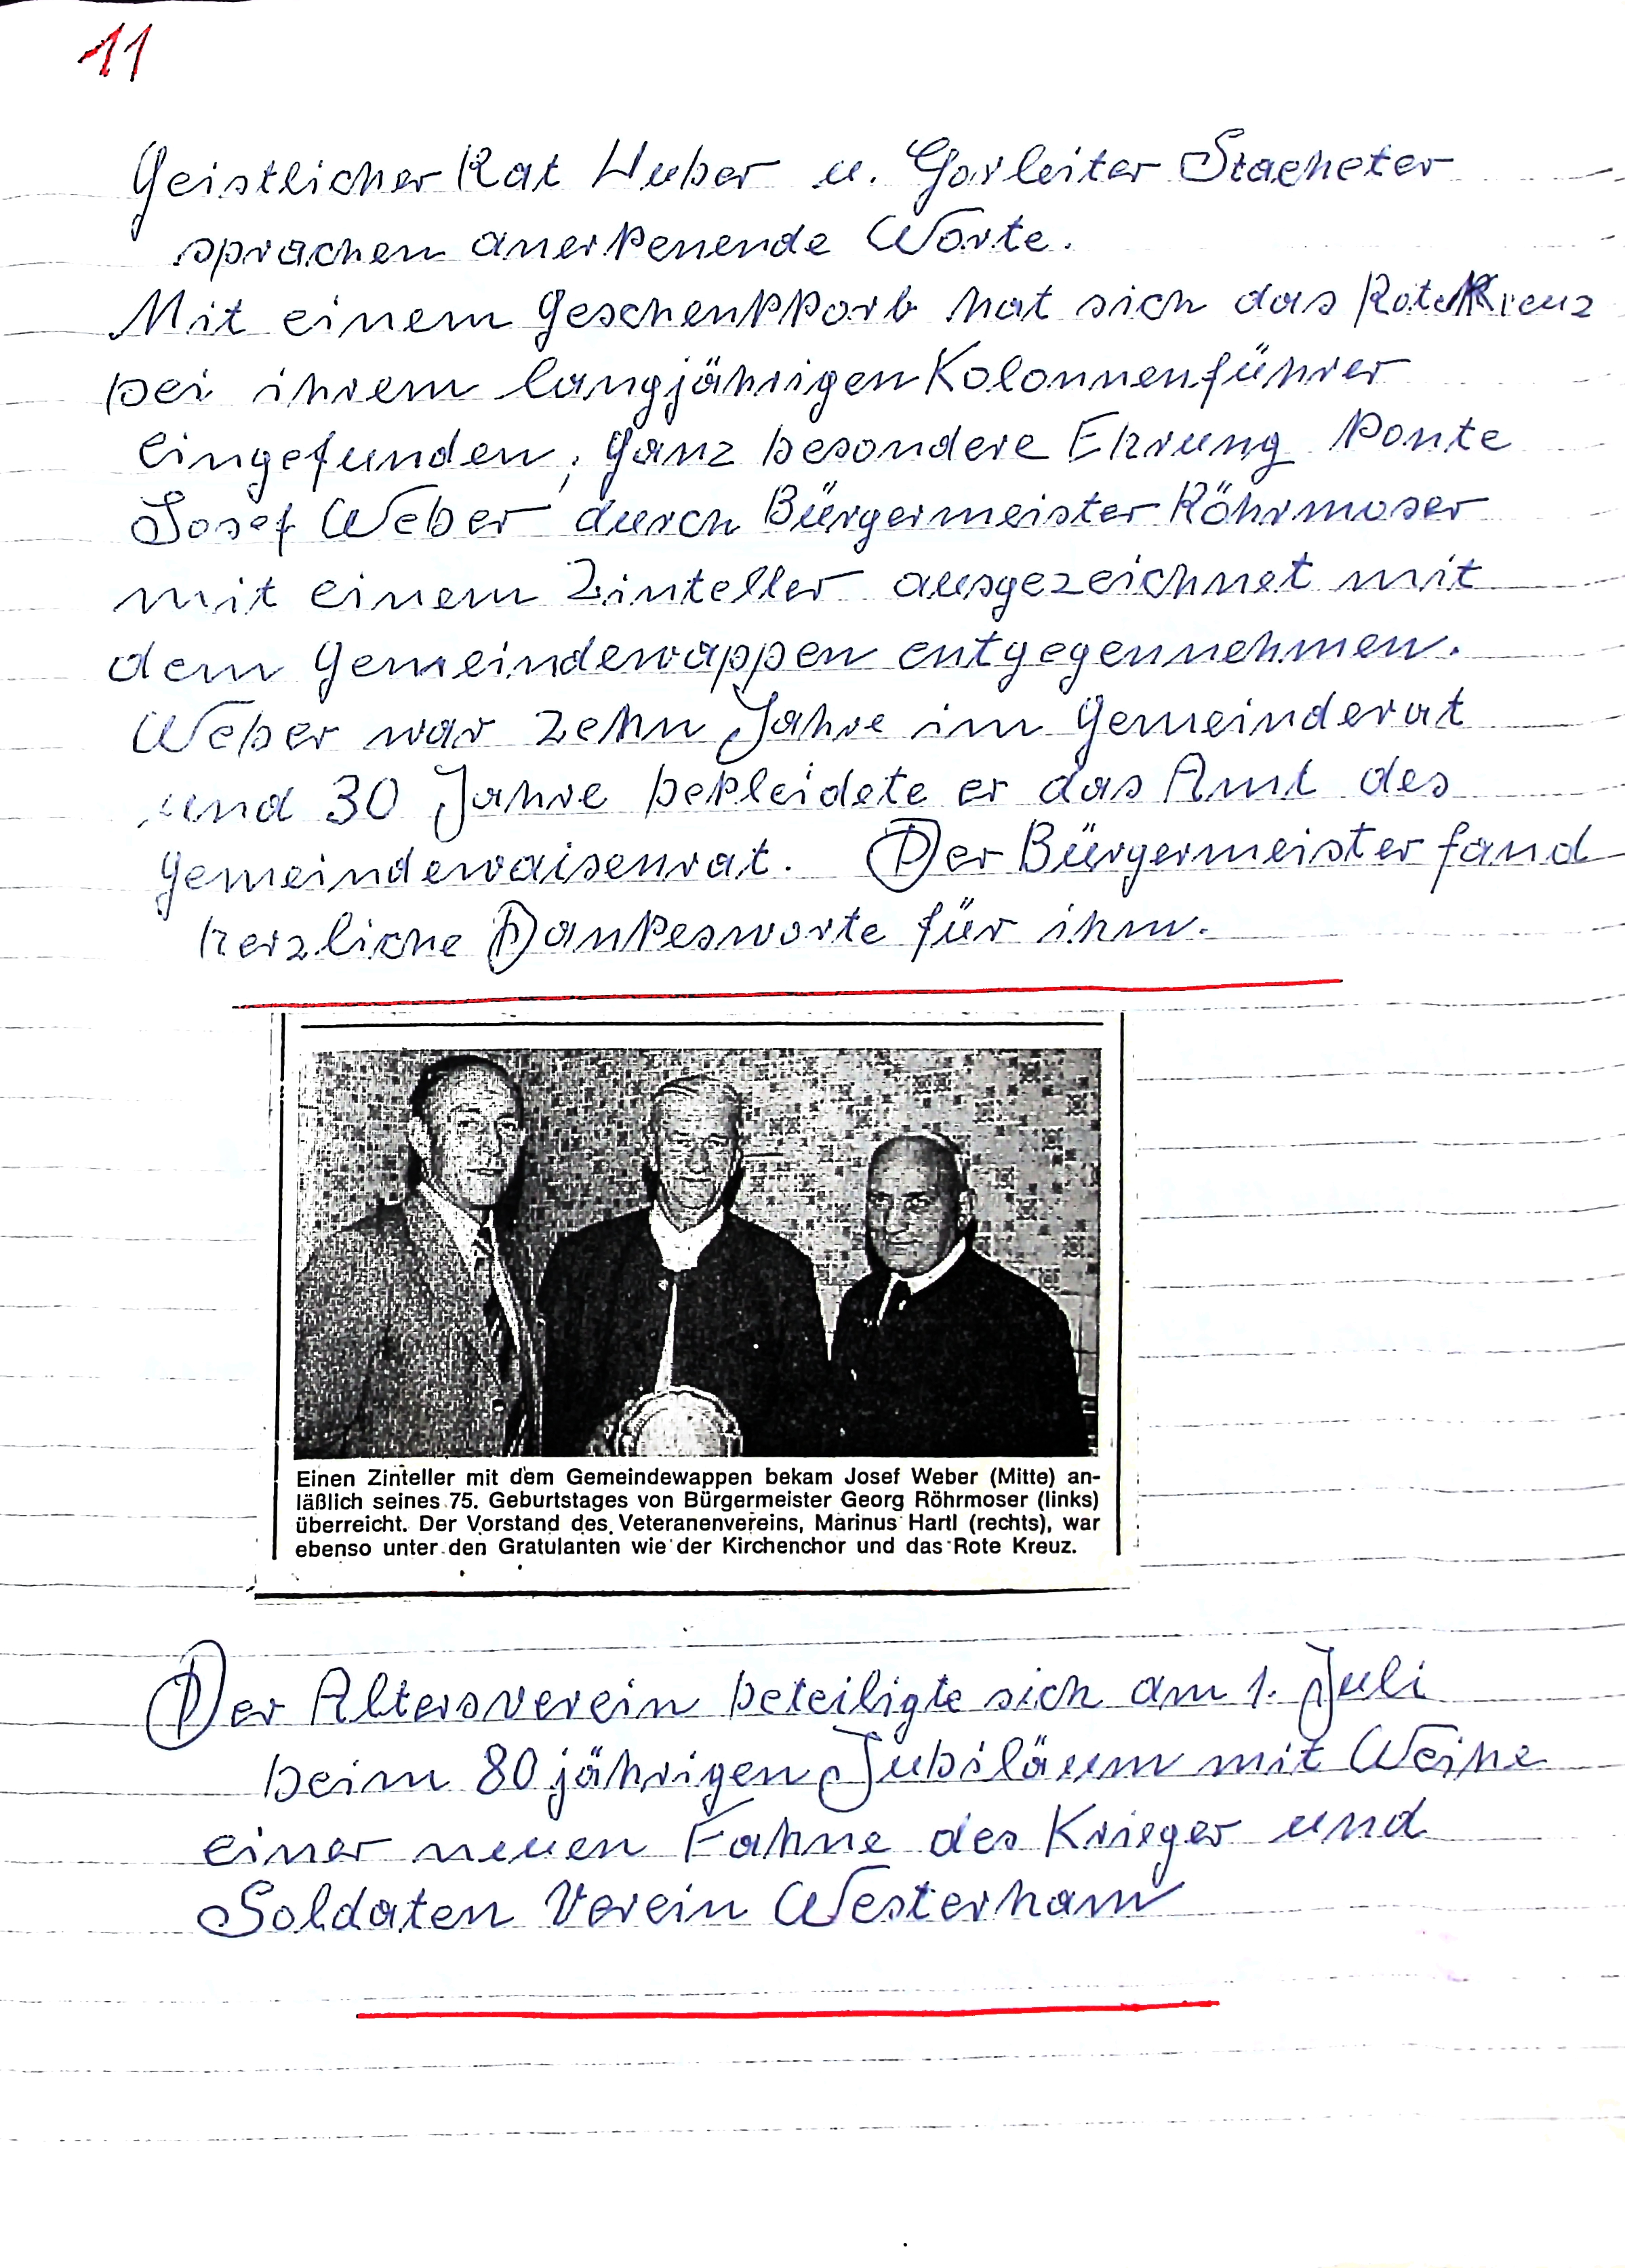 11
Geistlicher Rat Huber u. Chorleiter Stacheter
sprachen anerkenende Worte.
Mit einem Geschenkkorb hat sich das Rote Kreuz
bei ihrem langjährigen Kolonnenführer
eingefunden, ganz besondere Ehrung konte
Josef Weber durch Bürgermeister Röhrmoser
mit einem Zinteller ausgezeichnet mit
dem Gemeindewappen entgegennehmen.
Weber war zehn Jahre im Gemeinderat
und 30 Jahre bekleidete er das Amt des
Gemeindewaisenrat. Der Bürgermeister fand
herzliche Dankesworte für ihm.
Einen Zinteller mit dem Gemeindewappen bekam Josef Weber (Mitte) an-
läßlich seines 75. Geburtstages von Bürgermeister Georg Röhrmoser (links)
überreicht. Der Vorstand des Veteranenvereins, Marinus Hartl (rechts), war
ebenso unter den Gratulanten wie der Kirchenchor und das Rote Kreuz.
Der Altersverein beteiligte sich am 1. Juli
beim 80 jährigen Jubiläum mit Weihe
einer neuen Fahne des Krieger und
Soldaten Verein Westerham